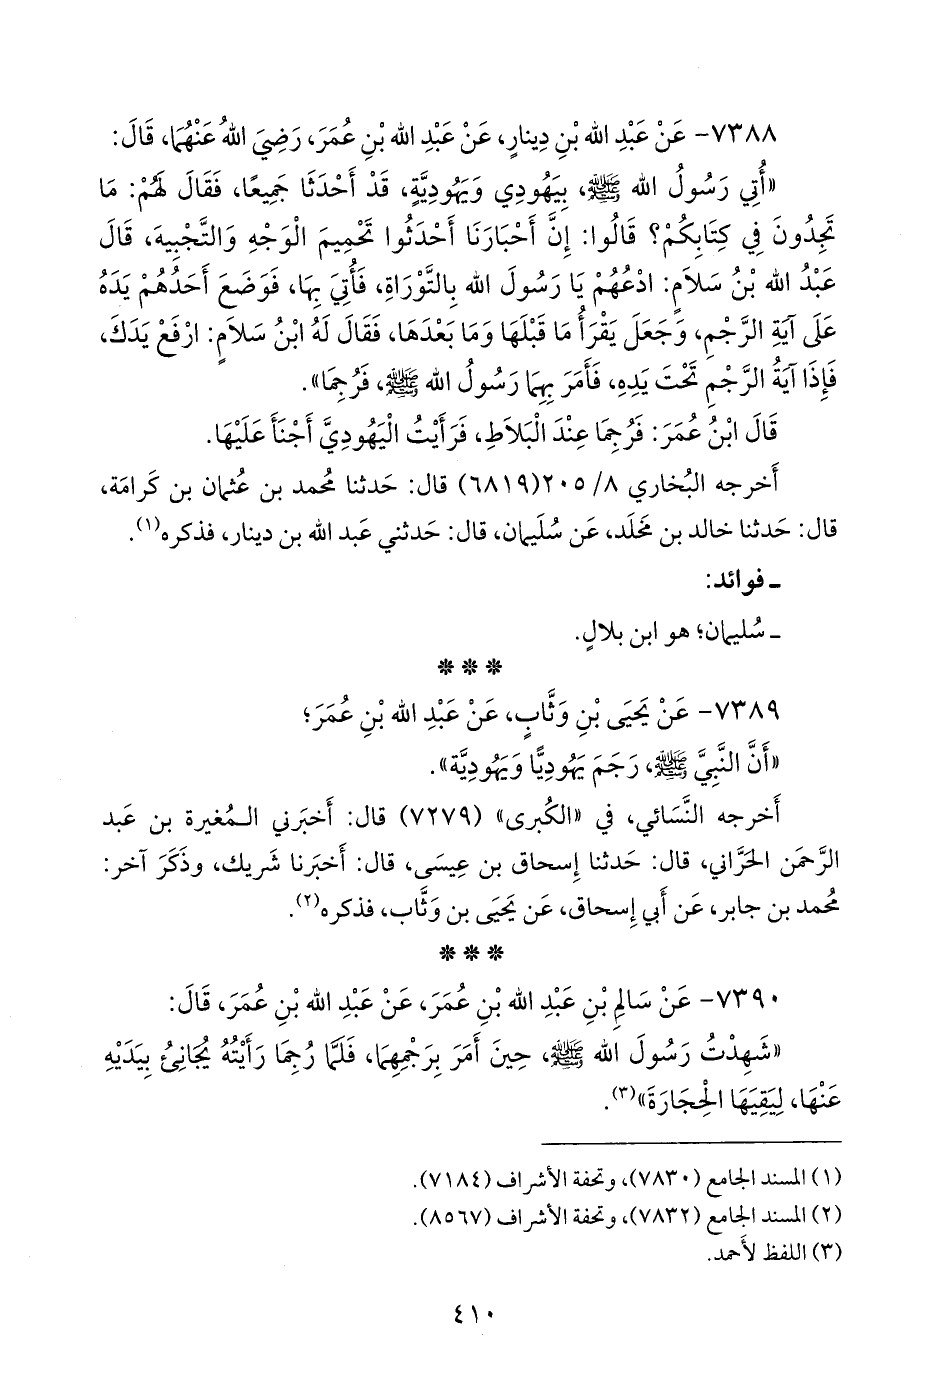 ٧٣٨٨- عَنْ عَبْدِ الله بْنِ دِينارٍ، عَنْ عَبْدِ الله بْنِ عُمَرَ، رَضِيَ اللهُ عَنْهُمَا، قَالَ:
«أُتِي رَسُولُ الله ﷺ، بِيَهُودِي وَيَهُودِيَّةٍ، قَدْ أَحْدَثَا جَمِيعًا، فَقَالَ لَهُمْ: مَا
تَجِدُونَ فِي كِتَابِكُمْ؟ قَالُوا: إِنَّ أَحْبَارَنَا أَحْدَثُوا تَحْمِيمَ الْوَجْهِ وَالتَّجْبِيهَ، قَالَ
عَبْدُ الله بْنُ سَلَامٍ: ادْعُهُمْ يَا رَسُولَ الله بِالتَّوْرَاةِ، فَأُتِيَ بِهَا، فَوَضَعَ أَحَدُهُمْ يَدَهُ
عَلَى آيَةِ الرَّجْمِ، وَجَعَلَ يَقْرَأُ مَا قَبْلَهَا وَمَا بَعْدَهَا، فَقَالَ لَهُ ابْنُ سَلَامٍ: ارْفَعْ يَدَكَ،
فَإِذَا آيَةُ الرَّجْمِ تَحْتَ يَدِهِ، فَأَمَرَ بِهِمَا رَسُولُ الله ﷺ، فَرُجِمَا».
قَالَ ابْنُ عُمَرَ: فَرُجِمَا عِنْدَ الْبَلَاطِ، فَرَأَيْتُ الْيَهُودِيَّ أَجْنَأَ عَلَيْهَا.
أَخرجه البُخاري ٨/ ٢٠٥(٦٨١٩) قال: حَدثنا مُحمد بن عُثمان بن كَرامَة،
قال: حَدثنا خالد بن مَخلَد، عَن سُلَيمان، قال: حَدثني عَبد الله بن دينار، فذكره(١).
ـ فوائد:
ـ سُليمان؛ هو ابن بلالٍ.
***
٧٣٨٩- عَنْ يَحْيَى بْنِ وَثَّابٍ، عَنْ عَبْدِ الله بْنِ عُمَرَ؛
«أَنَّ النَّبِيَّ ﷺ، رَجَمَ يَهُودِيًّا وَيَهُودِيَّة».
أَخرجه النَّسَائي، في «الكُبرى» (٧٢٧٩) قال: أَخبَرني المُغيرة بن عَبد
الرَّحمَن الحَرَّاني، قال: حَدثنا إِسحاق بن عِيسَى، قال: أَخبَرنا شَريك، وذَكَرَ آخر:
مُحمد بن جابر، عَن أَبي إِسحاق، عَن يَحيَى بن وَثَّاب، فذكره(٢).
***
٧٣٩٠- عَنْ سَالِمِ بْنِ عَبْدِ الله بْنِ عُمَرَ، عَنْ عَبْدِ الله بْنِ عُمَرَ، قَالَ:
«شَهِدْتُ رَسُولَ الله ﷺ، حِينَ أَمَرَ بِرَجْمِهِمَا، فَلَمَّا رُجِمَا رَأَيْتُهُ يُجَانِئُ بِيَدَيْهِ
عَنْهَا، لِيَقِيَهَا الْحِجَارَةَ»(٣).
(١) المسند الجامع (٧٨٣٠)، وتحفة الأشراف (٧١٨٤).
(٢) المسند الجامع (٧٨٣٢)، وتحفة الأشراف (٨٥٦٧).
(٣) اللفظ لأَحمد.
٤١٠